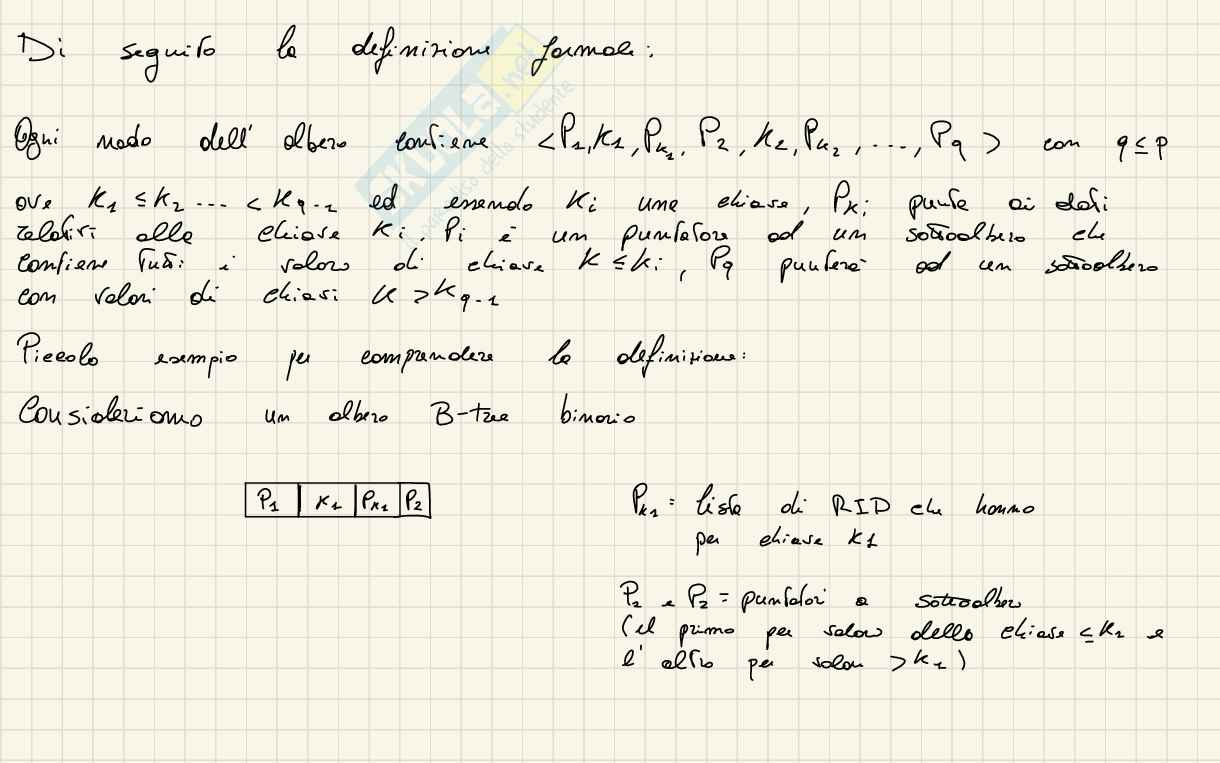 Di seguito la definizione formale:
Ogni nodo dell' albero contiene <P1, K1, PK1, P2, K2, PK2, ..., Pq> con q ≤ p
ove K1 ≤ K2 ... < Kq-1 ed essendo Ki una chiave, PKi punta ai dati
relativi alla chiave Ki. Pi è un puntatore ad un sottoalbero che
contiene tutti i valori di chiave K ≤ Ki, Pq punterà ad un sottoalbero
con valori di chiavi K > Kq-1
Piccolo esempio per comprendere la definizione:
Consideriamo un albero B-tree binario
P1 K1 PK1 P2
PK1 = lista di RID che hanno
per chiave K1
P1 e P2 = puntatori a sottoalbero
(il primo per valori della chiave ≤ K1 e
l' altro per valori > K1)
SKUOLA.net
il paradiso dello studente